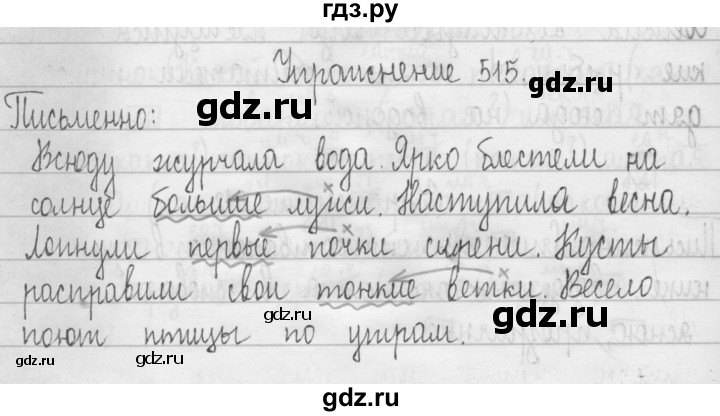 гдз.ру
Упражнение 515.
gdz.ru
gdz.ru
Письменно:
Всюду журчала вода. Ярко блестели на
gdz.ru
солнце большие лужи. Наступила весна.
Лопнули первые почки сирени. Кусты
расправили свои тонкие ветки. Весело
gdz.ru
поют птицы по утрам.
gdz.ru
gdz.ru
gdz.ru
gdz.ru